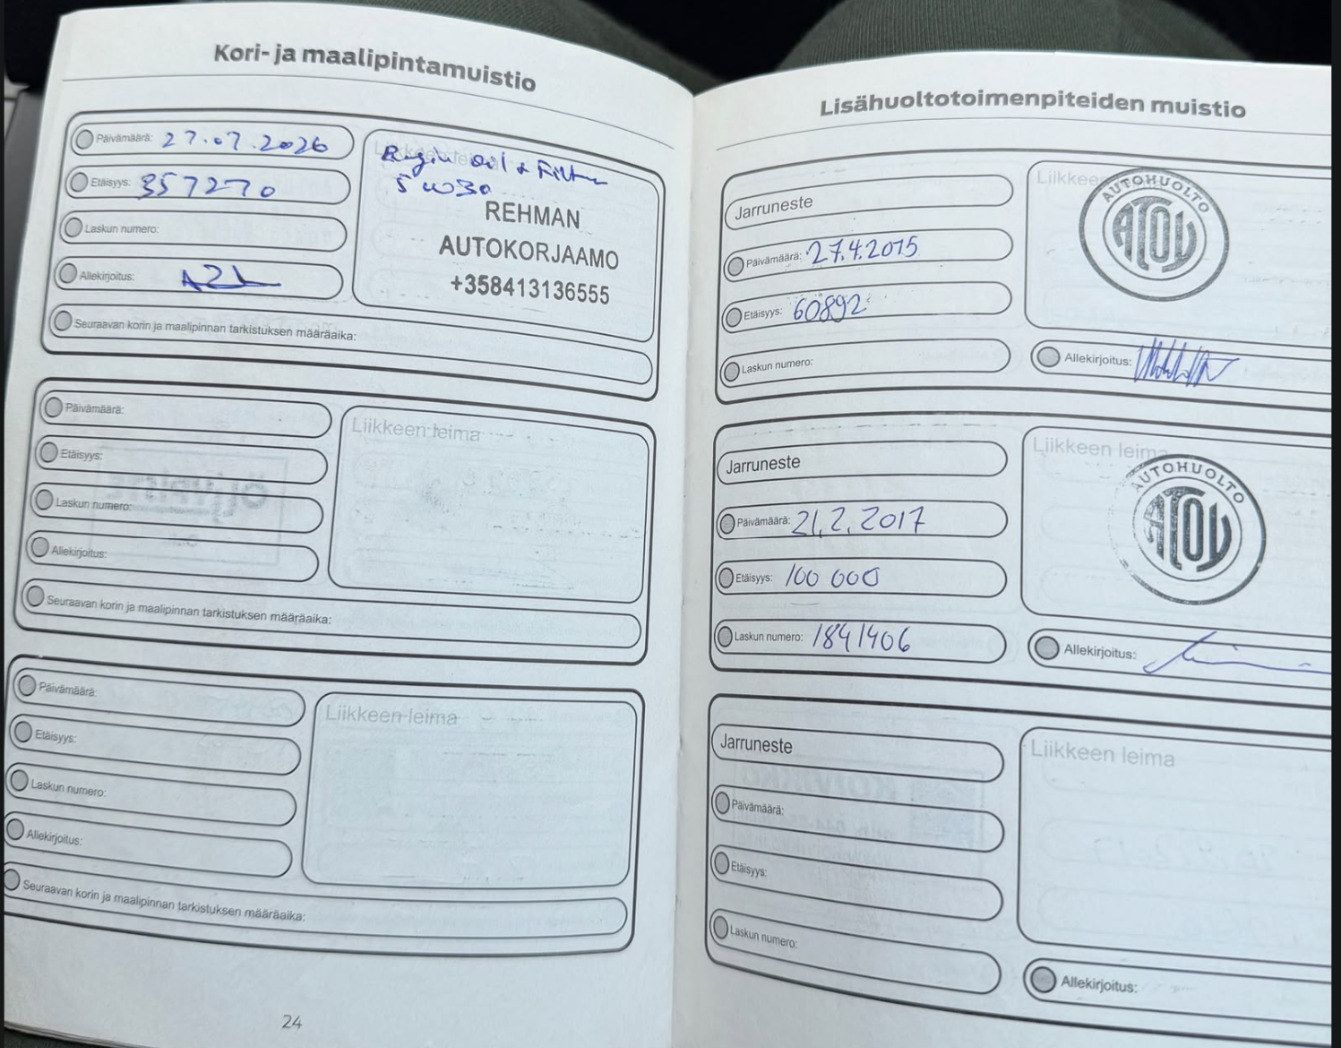 Kori- ja maalipintamuistio
Päivämäärä: 27.07.2026
Etäisyys: 357270
Laskun numero:
Allekirjoitus:
oil + Filter
5w30
REHMAN
AUTOKORJAAMO
+358413136555
Seuraavan korin ja maalipinnan tarkistuksen määräaika:
Päivämäärä:
Etäisyys:
Laskun numero:
Allekirjoitus:
Liikkeen leima
Seuraavan korin ja maalipinnan tarkistuksen määräaika:
Päivämäärä:
Etäisyys:
Laskun numero:
Allekirjoitus:
Liikkeen leima
Seuraavan korin ja maalipinnan tarkistuksen määräaika:
24
Lisähuoltotoimenpiteiden muistio
Jarruneste
Päivämäärä: 27.4.2015
Etäisyys: 60892
Laskun numero:
Liikkee
AUTOHUOLTO
ATOY
Allekirjoitus:
Jarruneste
Päivämäärä: 21.2.2017
Etäisyys: 100 000
Laskun numero: 1841406
Liikkeen leima
AUTOHUOLTO
ATOY
Allekirjoitus:
Jarruneste
Päivämäärä:
Etäisyys:
Laskun numero:
Liikkeen leima
Allekirjoitus: